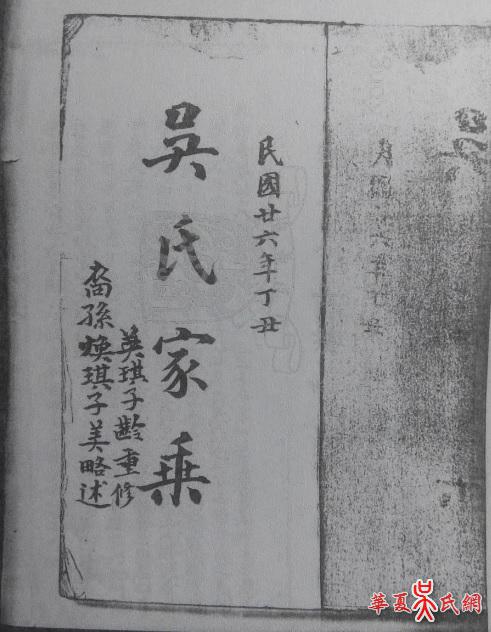 民國廿六年丁丑
吳氏家乘
英琪子齡重修
裔孫煥琪子美略述
華夏吳氏網